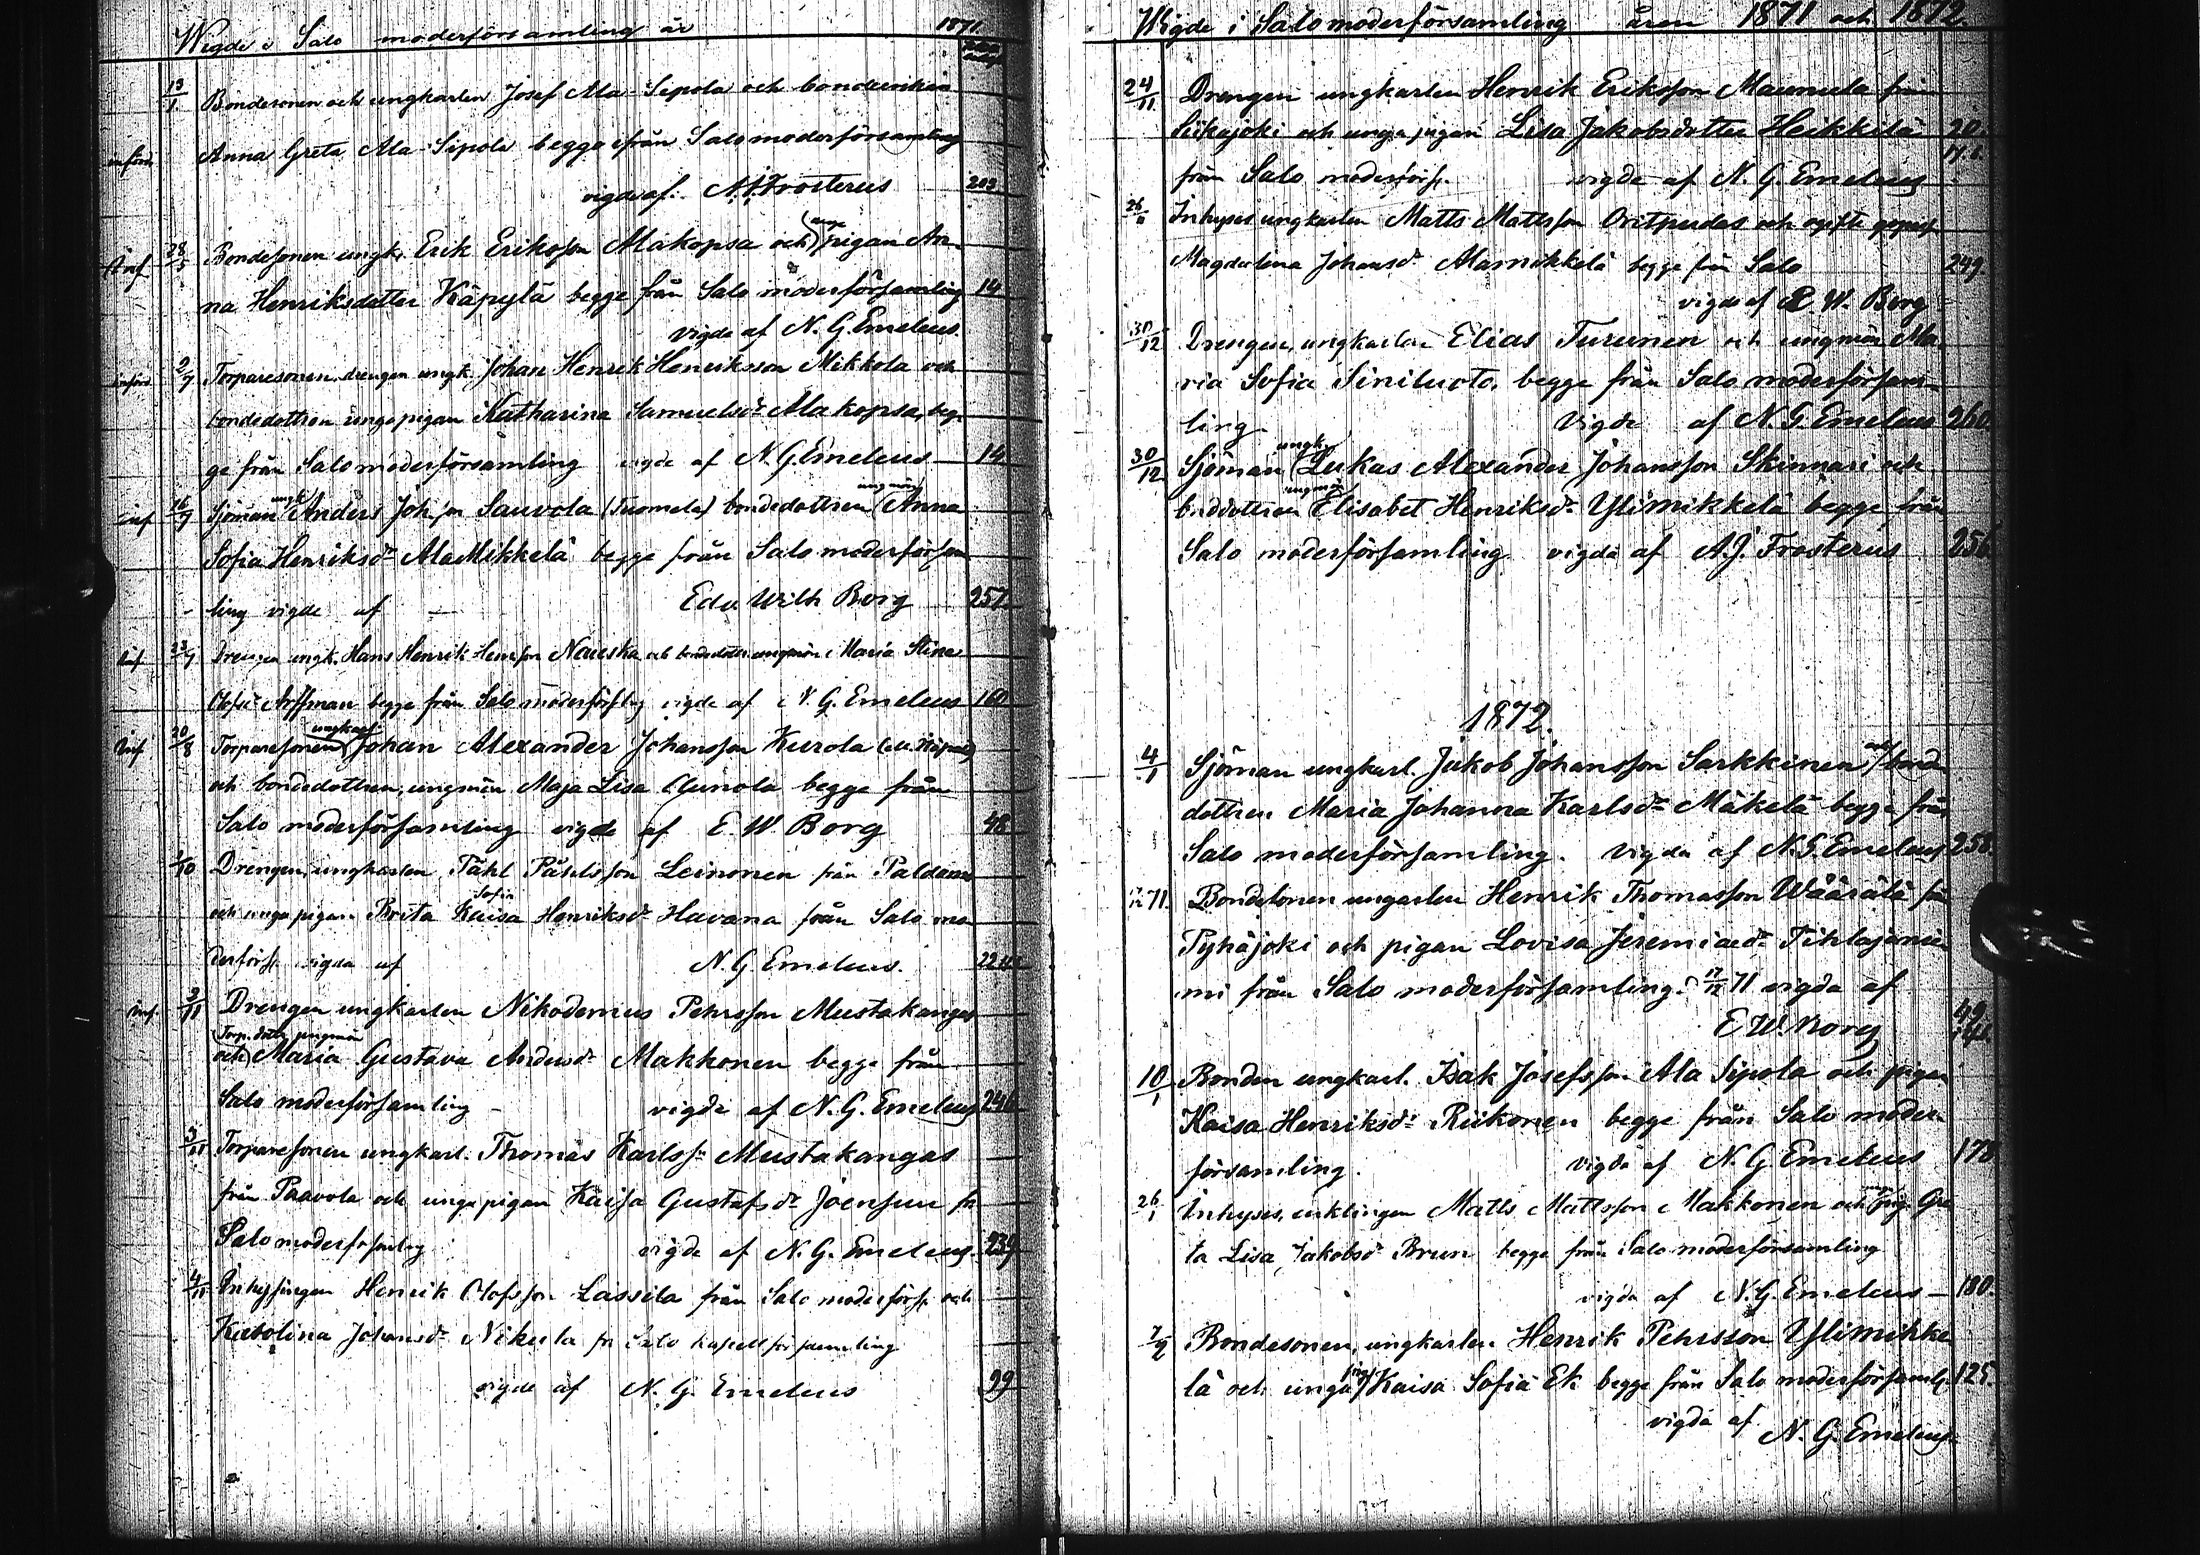 Wigde i Salo moderförsamling år 1871
13/1 Bondesonen och ungkarlen Josef Ala-Sipola och bondeenkan
införd Anna Greta Ala-Sipola begge ifrån Salo moderförsamling
vigde af. A.J. Frosterus 203
Inf 28/5 Bondesonen ungk. Erik Eriksson Alakopsa och unga pigan An-
na Henriksdotter Käpylä begge från Salo moderförsamling 14
vigde af N. G. Emeleus.
införd 2/7 Torparesonen, drengen ungk. Johan Henrik Henriksson Mikkola och
bondedottren unga pigan Katharina Samuelsdr Alakopsa, beg-
ge från Salo moderförsamling vigde af N. G. Emeleus 14
inf 16/7 Sjöman ungk Anders Johsson Sauvola (Tuomela) bondedottren ungmön Anna
Sofia Henriksdr AlaMikkelä begge från Salo moderförsam
ling vigde af — Edv Wilh Borg 257
inf 23/7 Drengen ungk. Hans Henrik Henrsson Naueska och bondedottr. ungmön Maria Stina
Olofsdr Arffman begge från Salo moderförslg vigde af N. G. Emeleus 160
Inf 20/8 Torparesonen ungkarl Johan Alexander Johansson Kurola
och bondedottren, ungmön Maja Lisa Aunola begge från
Salo moderförsamling vigde af E. W Borg 48
1/10 Drengen, ungkarlen Påhl Påhlsson Leinonen från Paldamo
och unga pigan Brita Sofia Kaisa Henriksdr Havana från Salo mo
derförs. vigda af N. G Emeleus.
inf. 3/11 Drengen ungkarlen Nikodemus Pehrsson Mustakangas
och Torp.dottr, ungmön Maria Gustava Andersdr Makkonen begge från
Salo moderförsamling vigde af N. G. Emeleus 246
3/11 Torparesonen ungkarl. Thomas Karlss. Mustakangas
från Paavola och unga pigan Kaisa Gustafsdr Joensuu fr
Salo moderförsamlig vigde af N. G. Emeleus 239
4/11 Inhysingen Henrik Olofsson Lassila från Salo moderförs. och
Karolina Johansdr Nikula fr Salo kapellförsamling
vigde af N. G. Emeleus 99
Wigde i Salo moderförsamling åren 1871 och 1872.
24/11 Drengen ungkarlen Henrik Eriksson Maunula från
Siikajoki och unga pigan Lisa Jakobsdotter Heikkilä 20.
från Salo moderförs. vigde af N. G. Emeleus
26/11 Inhyses ungkarlen Matts Mattsson Oritperdas och ogifte
Magdalena Johansdr Alamikkelä begge från Salo 249
vigde af E. W. Borg
30/12 Drengen, ungkarlen Elias Turunen och ungmön Ma-
ria Sofia Siniluoto, begge från Salo moderförsam-
ling. Vigde af N. G. Emeleus 260
30/12 Sjöman ungk. Lukas Alexander Johansson Skinnari och
bnddottren ungmön Elisabet Henriksdr Ylimikkelä begge från
Salo moderförsamling vigda af A. J. Frosterus 256
1872.
4/1 Sjöman ungkarl. Jakob Johansson Sarkkinen och bonde
dottren Maria Johanna Karlsdr Mäkelä begge från
Salo moderförsamling. vigda af N. G. Emeleus 258.
17/12 71. Bondesonen ungarlen Henrik Thomasson Wäärälä från
Pyhäjoki och pigan Lovisa Jeremiaedr Pihlajanie
mi från Salo moderförsamling. 17/12 71 vigda af
E. W. Borg 49
10/1 Bonden ungkarl. Isak Josefsson Ala Sipola och pigan
Kaisa Henriksdr Riikonen begge från Salo moder-
församling. vigda af N. G Emeleus 178
26/1 Inhyses, enklingen Matts Mattsson Makkonen och unga pig. Gre
ta Lisa Jakobsdr Brun begge från Salo moderförsamling
vigda af N. G. Emeleus 180.
7/2 Bondesonen, ungkarlen Henrik Pehrsson Ylimikke
lä och unga pig Kaisa Sofia Ek begge från Salo moderförsaml. 125.
vigda af N. G. Emeleus.